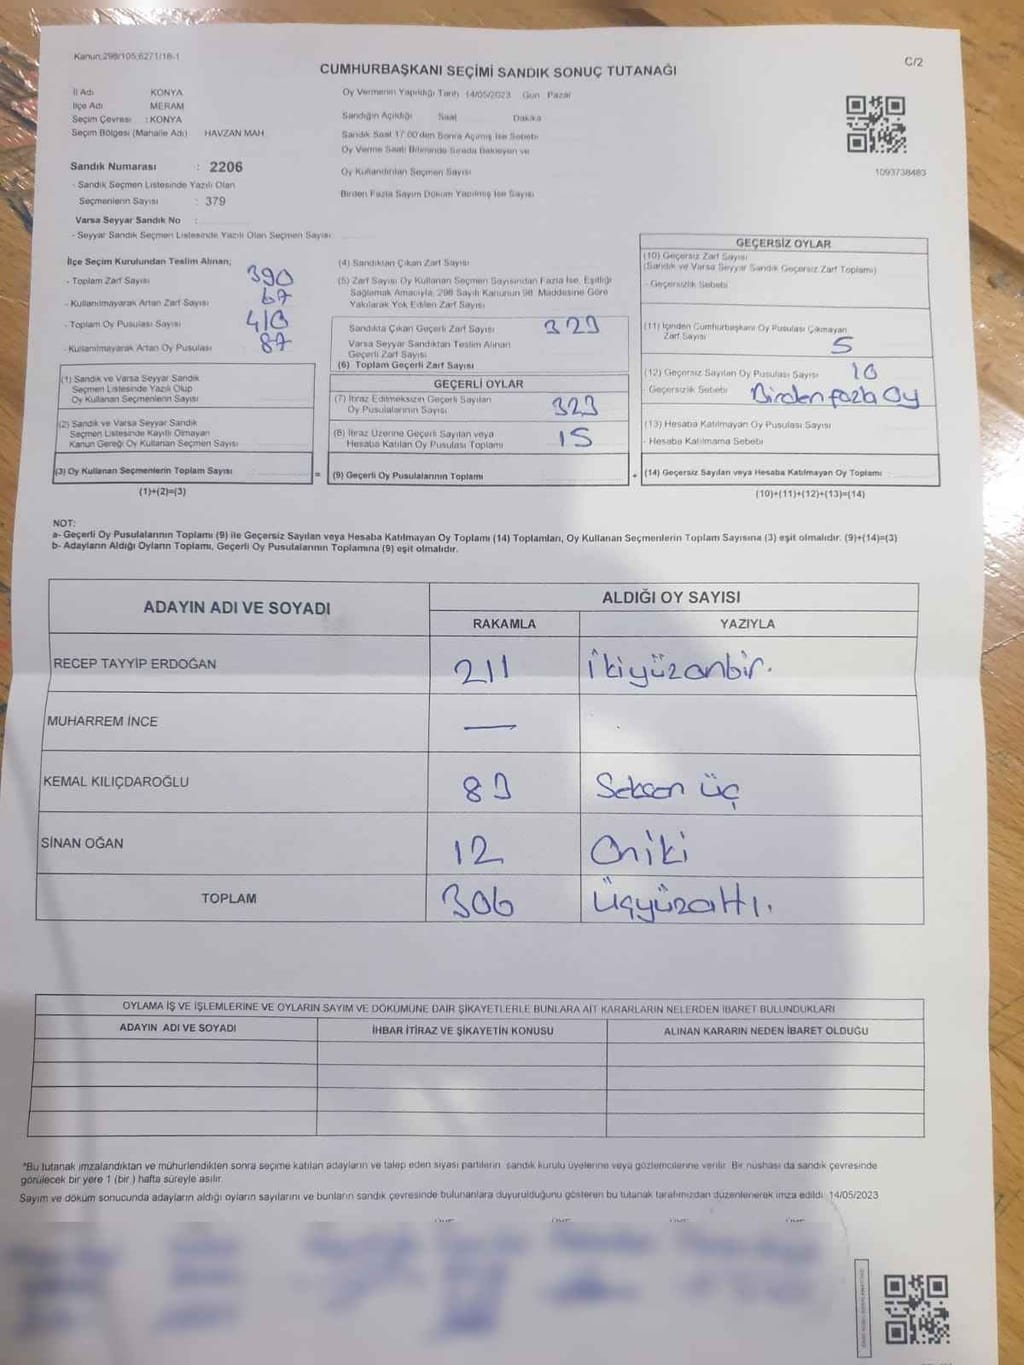 Kanun:298/105,6271/16-1
C/2
CUMHURBAŞKANI SEÇİMİ SANDIK SONUÇ TUTANAĞI
İl Adı KONYA
İlçe Adı MERAM
Seçim Çevresi : KONYA
Seçim Bölgesi (Mahalle Adı) HAVZAN MAH
Sandık Numarası : 2206
- Sandık Seçmen Listesinde Yazılı Olan
Seçmenlerin Sayısı : 379
Varsa Seyyar Sandık No :
- Seyyar Sandık Seçmen Listesinde Yazılı Olan Seçmen Sayısı:
Oy Vermenin Yapıldığı Tarih 14/05/2023 Gün Pazar
Sandığın Açıldığı Saat Dakika
Sandık Saat 17:00'den Sonra Açılmış İse Sebebi
Oy Verme Saati Bitiminde Sırada Bekleyen ve
Oy Kullandırılan Seçmen Sayısı
Birden Fazla Sayım Döküm Yapılmış İse Sayısı
1093738483
İlçe Seçim Kurulundan Teslim Alınan;
- Toplam Zarf Sayısı 390
- Kullanılmayarak Artan Zarf Sayısı 67
- Toplam Oy Pusulası Sayısı 410
- Kullanılmayarak Artan Oy Pusulası 87
(1) Sandık ve Varsa Seyyar Sandık
Seçmen Listesinde Yazılı Olup
Oy Kullanan Seçmenlerin Sayısı
(2) Sandık ve Varsa Seyyar Sandık
Seçmen Listesinde Kayıtlı Olmayan
Kanun Gereği Oy Kullanan Seçmen Sayısı
(3) Oy Kullanan Seçmenlerin Toplam Sayısı =
(1)+(2)=(3)
(4) Sandıktan Çıkan Zarf Sayısı
(5) Zarf Sayısı Oy Kullanan Seçmen Sayısından Fazla İse, Eşitliği
Sağlamak Amacıyla, 298 Sayılı Kanunun 98. Maddesine Göre
Yakılarak Yok Edilen Zarf Sayısı
Sandıkta Çıkan Geçerli Zarf Sayısı 323
Varsa Seyyar Sandıktan Teslim Alınan
Geçerli Zarf Sayısı
(6) Toplam Geçerli Zarf Sayısı
GEÇERLİ OYLAR
(7) İtiraz Edilmeksizin Geçerli Sayılan
Oy Pusulalarının Sayısı 323
(8) İtiraz Üzerine Geçerli Sayılan veya
Hesaba Katılan Oy Pusulası Toplamı 15
(9) Geçerli Oy Pusulalarının Toplamı +
GEÇERSİZ OYLAR
(10) Geçersiz Zarf Sayısı
(Sandık ve Varsa Seyyar Sandık Geçersiz Zarf Toplamı)
- Geçersizlik Sebebi
(11) İçinden Cumhurbaşkanı Oy Pusulası Çıkmayan
Zarf Sayısı 5
(12) Geçersiz Sayılan Oy Pusulası Sayısı 10
Geçersizlik Sebebi Birden fazla Oy
(13) Hesaba Katılmayan Oy Pusulası Sayısı
- Hesaba Katılmama Sebebi
(14) Geçersiz Sayılan veya Hesaba Katılmayan Oy Toplamı
(10)+(11)+(12)+(13)=(14)
NOT:
a- Geçerli Oy Pusulalarının Toplamı (9) ile Geçersiz Sayılan veya Hesaba Katılmayan Oy Toplamı (14) Toplamları, Oy Kullanan Seçmenlerin Toplam Sayısına (3) eşit olmalıdır. (9)+(14)=(3)
b- Adayların Aldığı Oyların Toplamı, Geçerli Oy Pusulalarının Toplamına (9) eşit olmalıdır.
ADAYIN ADI VE SOYADI
ALDIĞI OY SAYISI
RAKAMLA YAZIYLA
RECEP TAYYİP ERDOĞAN 211 İkiyüzonbir.
MUHARREM İNCE —
KEMAL KILIÇDAROĞLU 83 Seksen üç
SİNAN OĞAN 12 Oniki
TOPLAM 306 Üçyüzaltı.
OYLAMA İŞ VE İŞLEMLERİNE VE OYLARIN SAYIM VE DÖKÜMÜNE DAİR ŞİKAYETLERLE BUNLARA AİT KARARLARIN NELERDEN İBARET BULUNDUKLARI
ADAYIN ADI VE SOYADI İHBAR İTİRAZ VE ŞİKAYETİN KONUSU ALINAN KARARIN NEDEN İBARET OLDUĞU
*Bu tutanak imzalandıktan ve mühürlendikten sonra seçime katılan adayların ve talep eden siyasi partilerin sandık kurulu üyelerine veya gözlemcilerine verilir. Bir nüshası da sandık çevresinde
görülecek bir yere 1 (bir) hafta süreyle asılır.
Sayım ve döküm sonucunda adayların aldığı oyların sayılarını ve bunların sandık çevresinde bulunanlara duyurulduğunu gösteren bu tutanak tarafımızdan düzenlenerek imza edildi. 14/05/2023